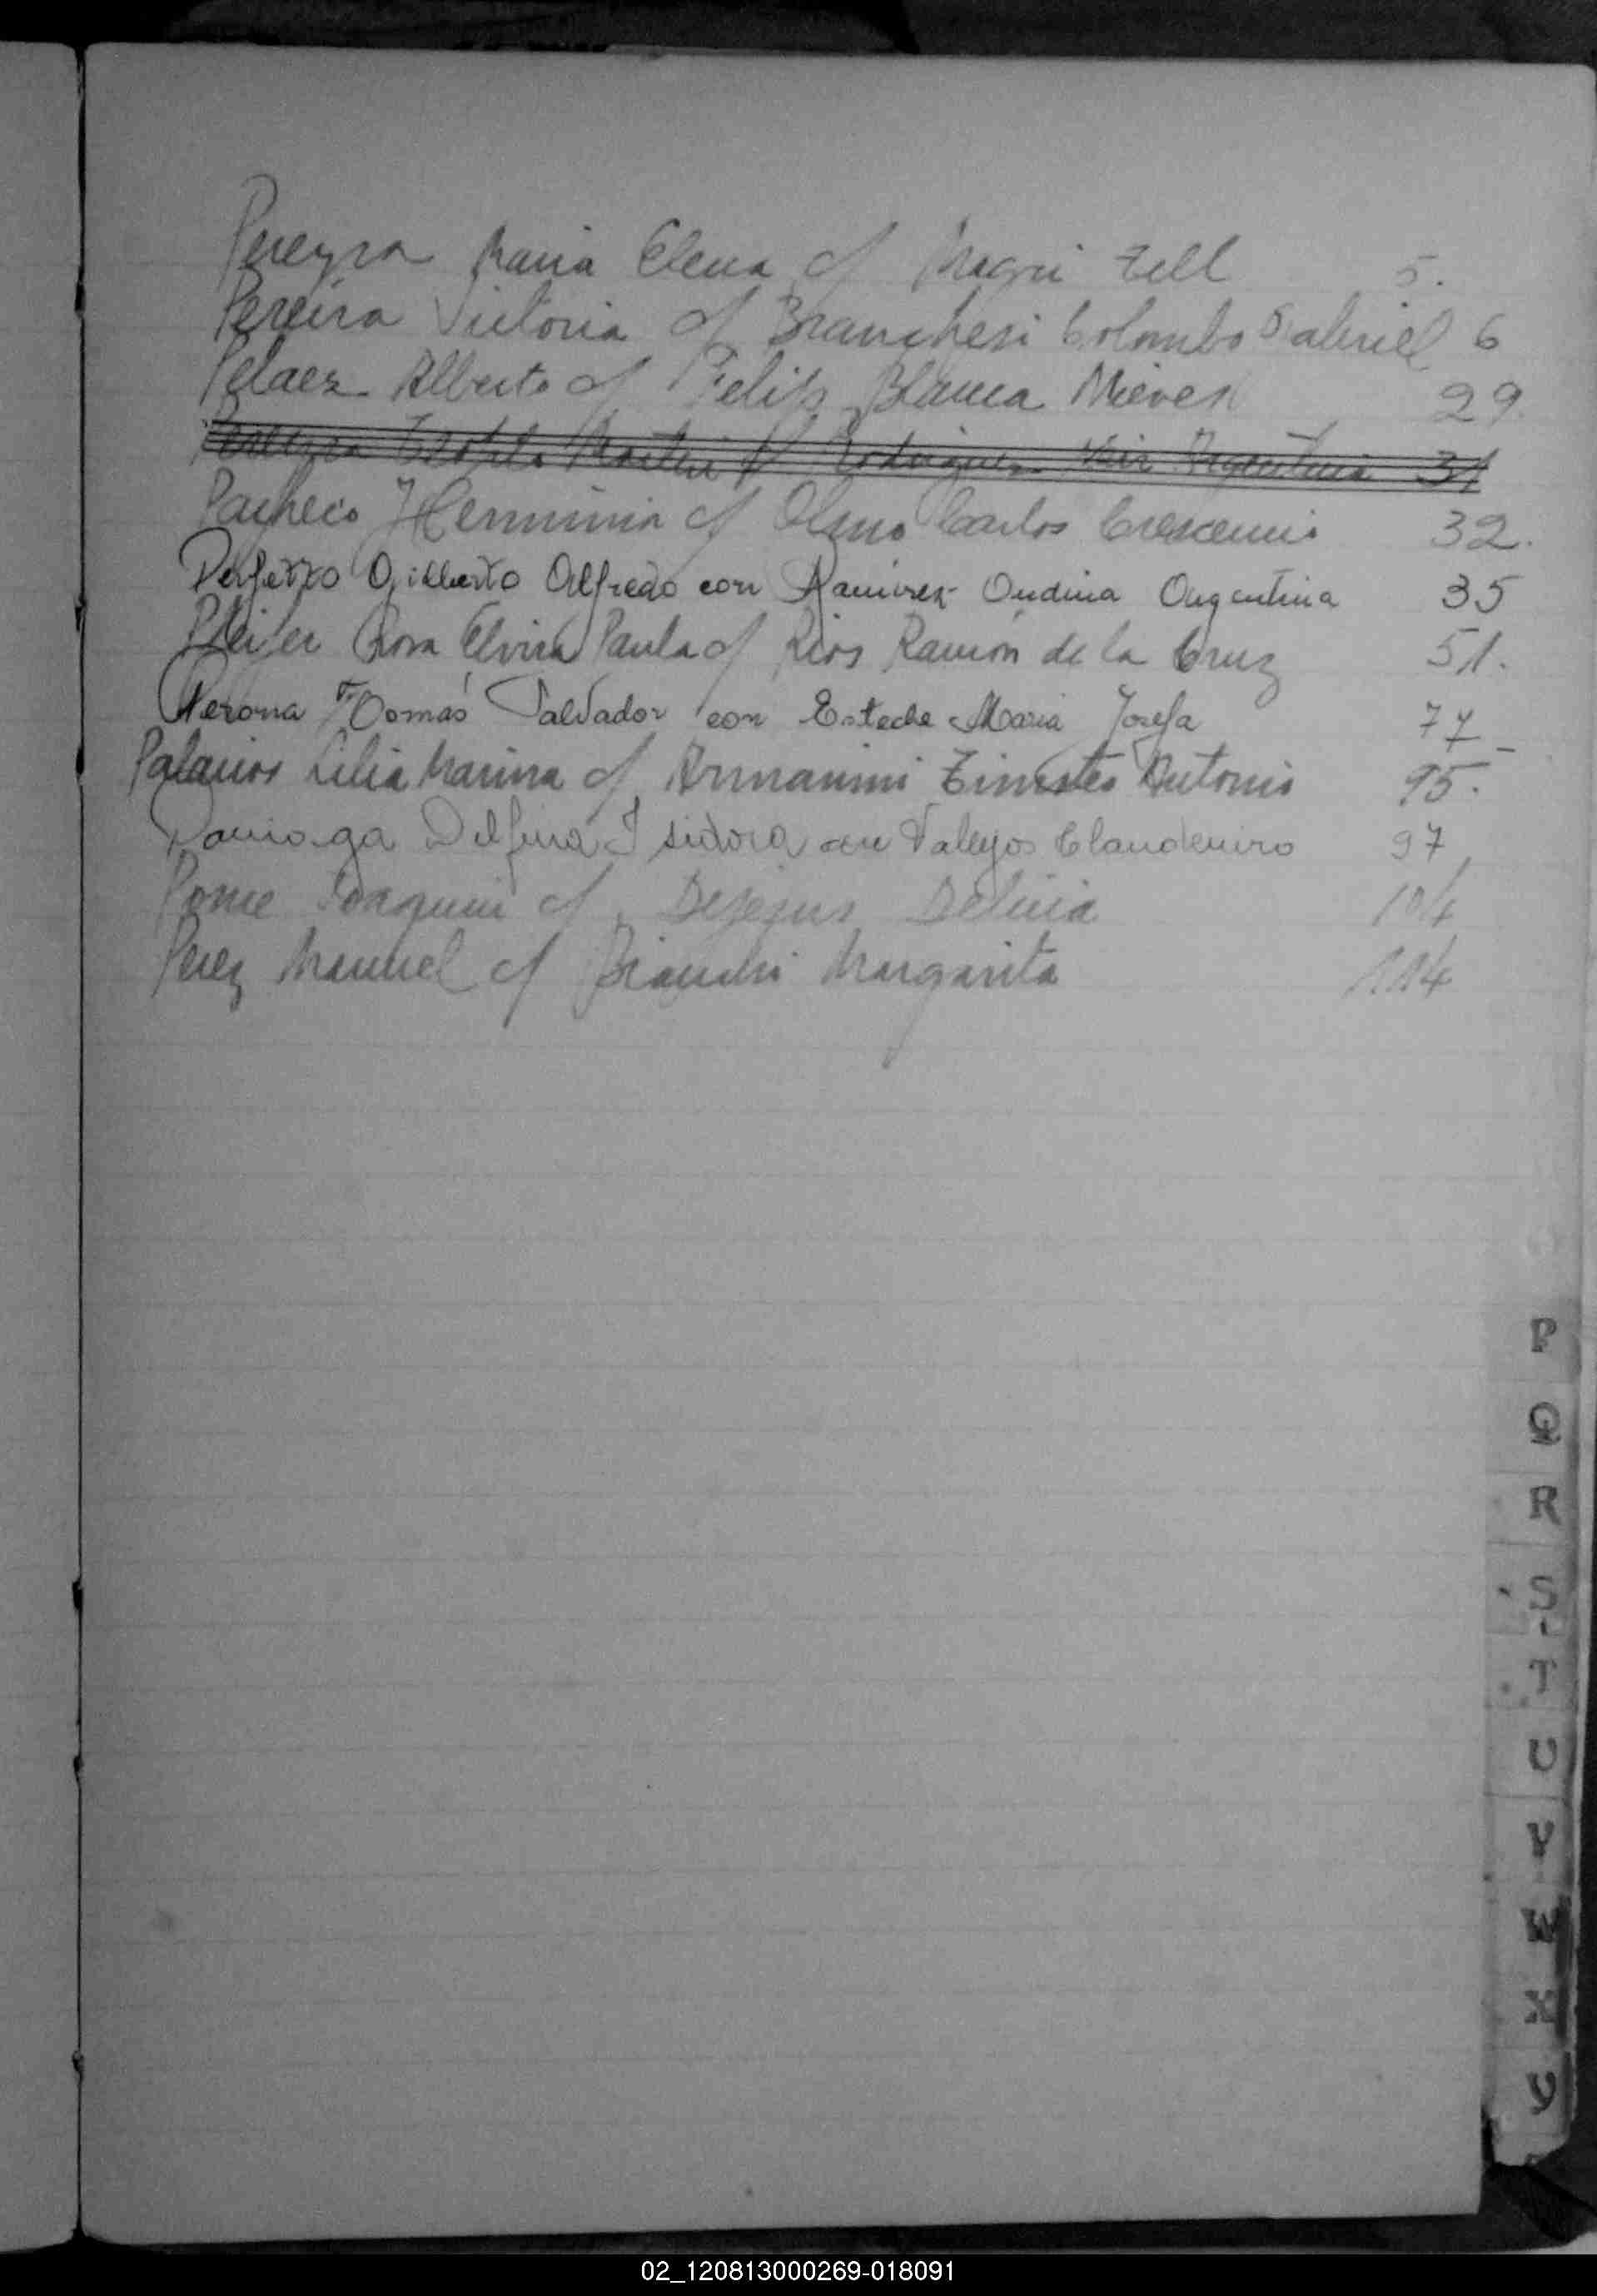 Pereyra Maria Elena c/ Magri Zell 5.
Pereira Victoria c/ Branchesi Colombo Gabriel 6
Pelaez Alberto c/ Felip Blanca Nieves 29.
Pereyra Martin c/ Rodriguez Argentina 31
Pacheco Herminia c/ Olmo Carlos Crescencio 32.
Perfetto Gilberto Alfredo con Ramirez Ondina Argentina 35
Pfeifer Rosa Elvira Paula c/ Rios Ramón de la Cruz 51.
Perona Tomás Salvador con Esteche Maria Josefa 77
Palacios Lilia Marina c/ Armanini Antonio 95.
Delfina Isidora con Vallejos Claudemiro 97
Ponce Joaquin c/ Dejesus Delicia 104
Perez Manuel c/ Bianchi Margarita 114
P
Q
R
S
T
U
V
W
X
Y
02_120813000269-018091